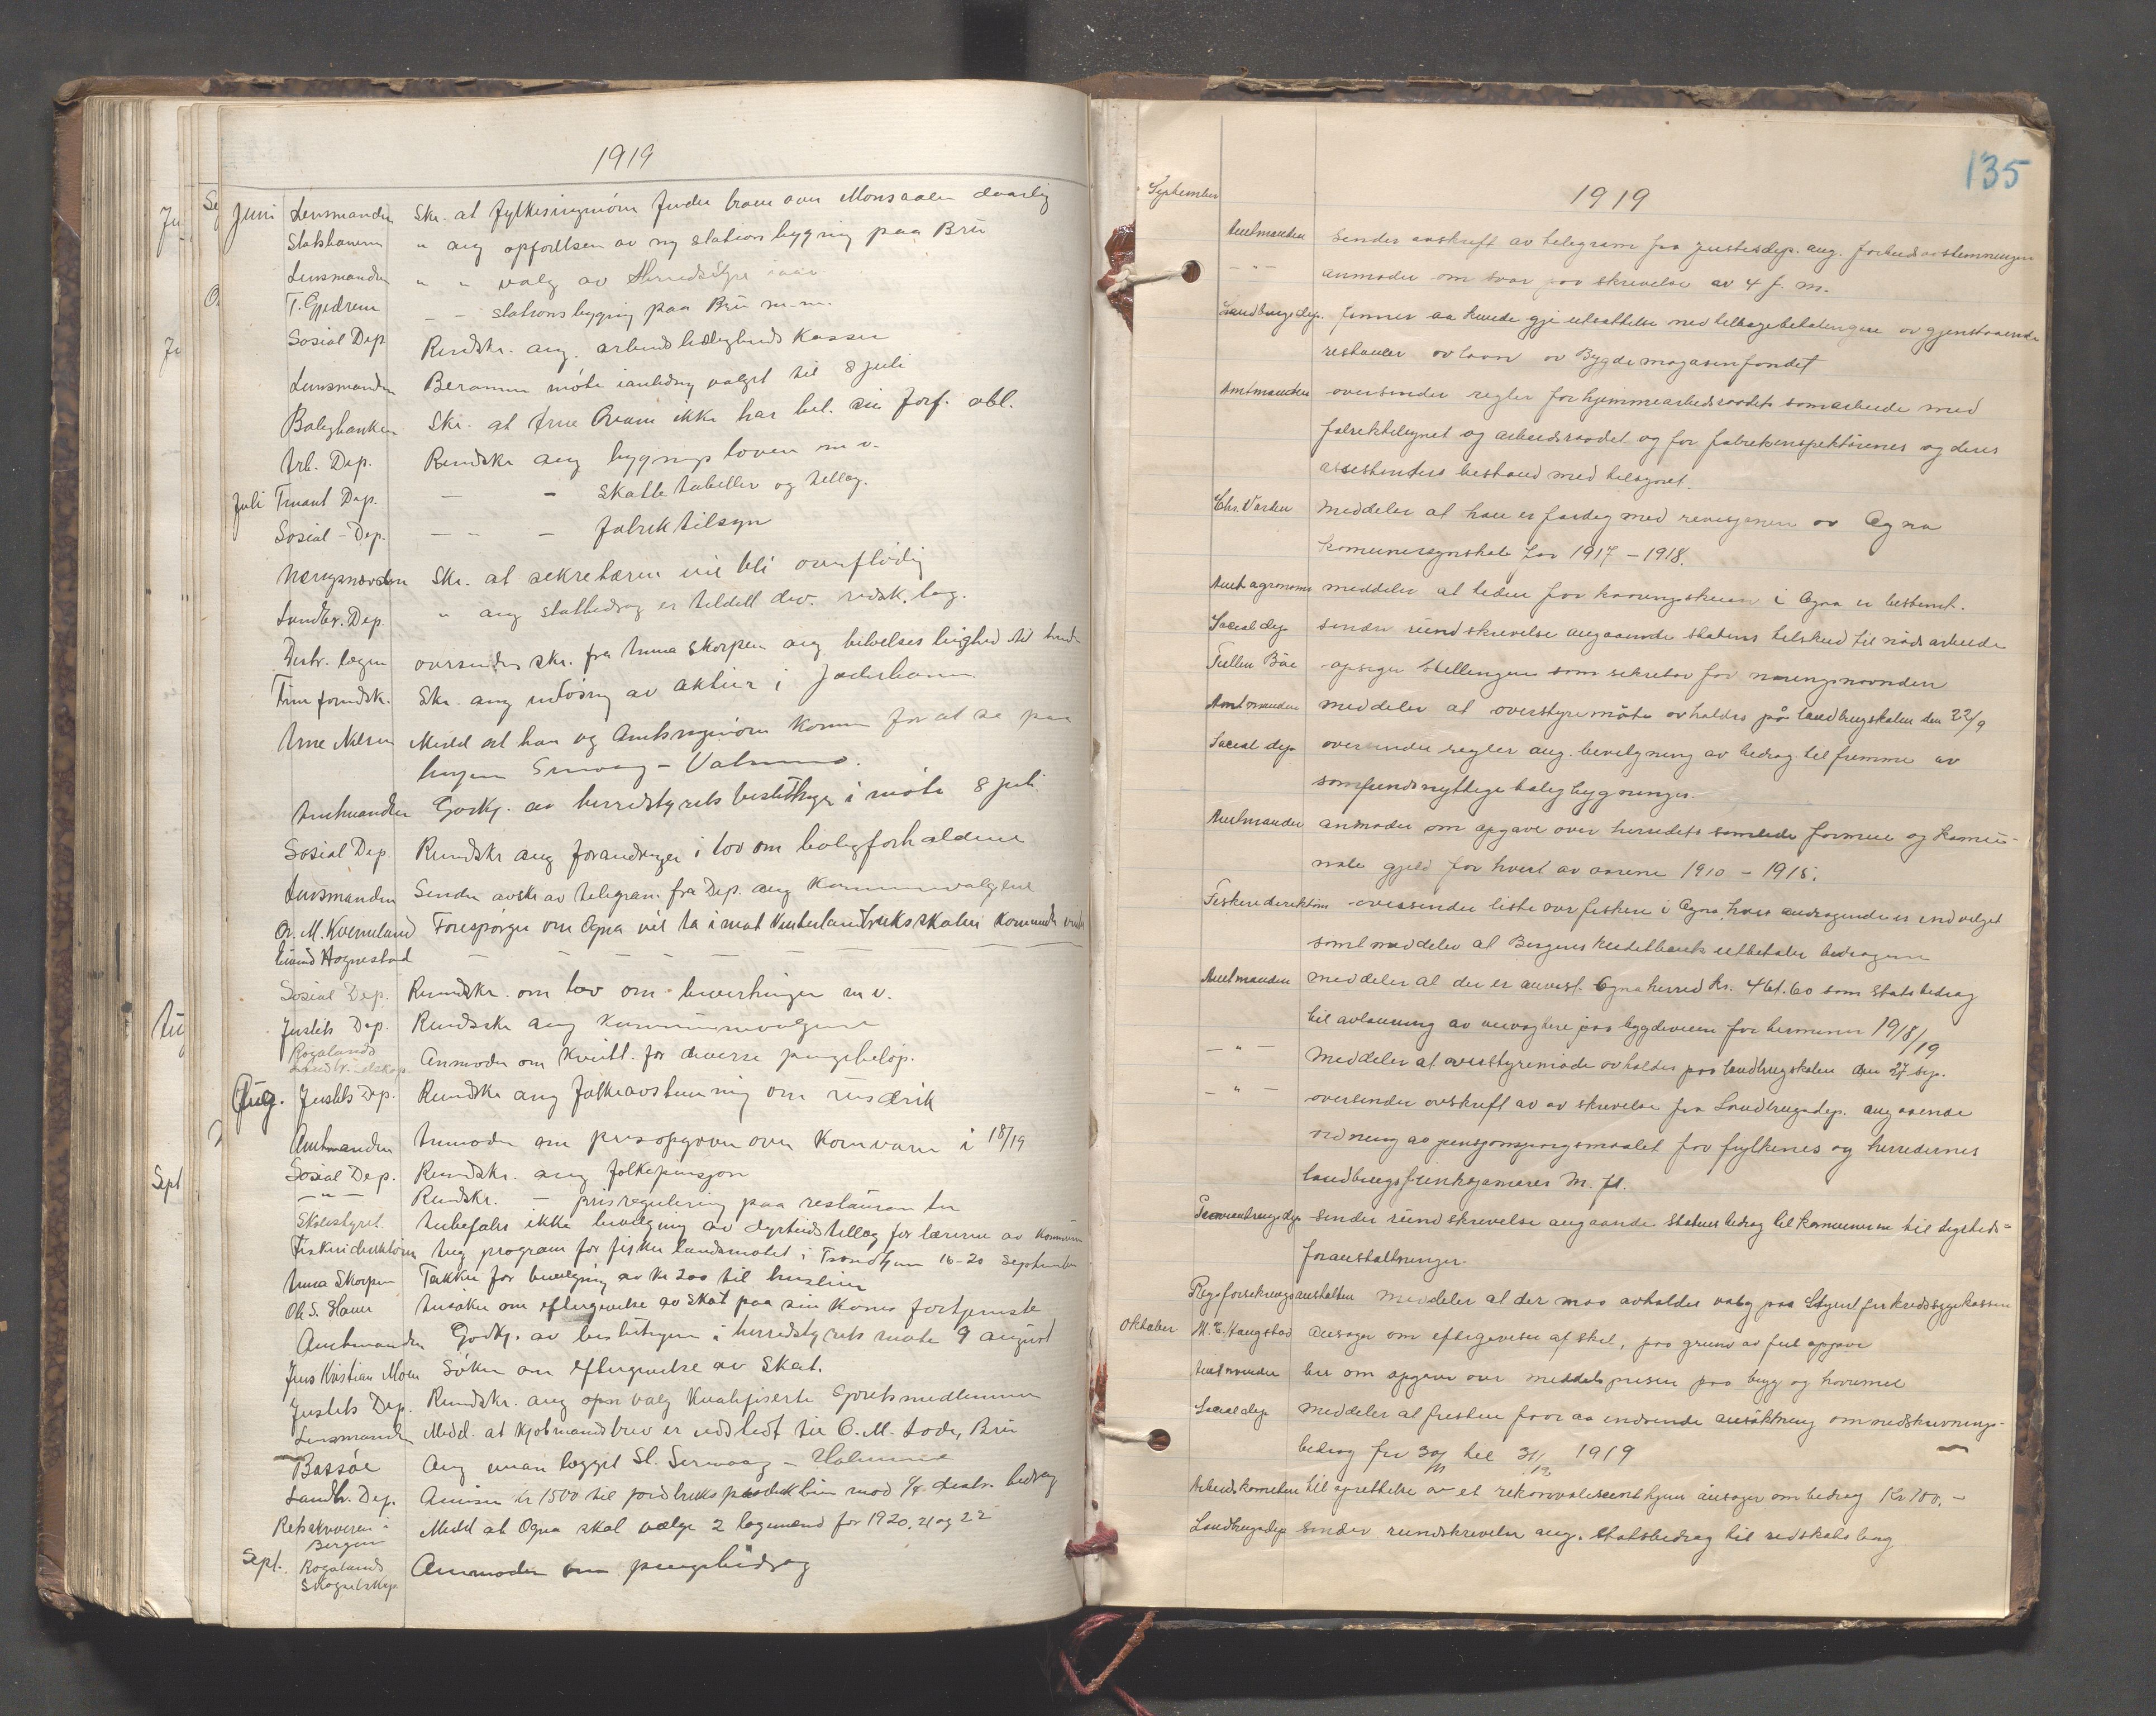 1919
Juni Lensmanden Skr. at fylkesingeniøren finder broen over daarlig
Statsbanerne " ang opførelsen av ny stationsbygning paa Brü
Lensmanden " " valg av
T. Gjedrem — — stationsbygning paa Brü m.m.
Sosial Dep Rundskr. ang. arbeidsledighedskassen
Lensmanden Berammer møte ianledng valget til 8 juli
Boligbanken Skr. at Arne ikke har bet. sin forf. obl.
Arb. Dep. Rundskr ang bygningsloven m v.
Juli Finant Dep. — — Skattetabeller og tillæg.
Sosial-Dep. — " — Fabriktilsyn
Skr. at sekretæren vil bli overflødig
Landbr. Dep. " ang statbidrag er tildelt div. redsk. lag.
Distr. lægen oversender skr. fra Anna Skorpen ang
Skr. ang av aktier i Jæderbanen
Arne Meddl at han og Amtsingeniøren kommer for at se paa
Amtmanden Godkj. av herredstyrets beslutninger i møte 8 juli.
Sosial Dep. Rundskr ang forandringer i lov om boligforholdene
Lensmanden Sender avskr av telegram fra Dep. ang kommunevalgene
O. M. Kverneland Forespørger om Ogna vil ta imot Vinterlandbruksskolen kommende vinter
Eivind Hognestad — — — — — —
Sosial Dep. Rundskr. om lov om beverthinger m v.
Justits Dep. Rundskr ang kommunevalgene
Rogalands
Landbr. selskap Anmoder om kvitt. for diverse pengebeløp.
Aug. Justits Dep. Rundskr ang folkeavstemning om rusdrik
Amtmanden Anmoder om prisopgaver over kornvarer i 18/19
Sosial Dep. Rundskr. ang folkepensjon
— " — Rundskr. — prisregulering paa restauranter
Skolestyret Anbefaler ikke bevilgning av dyrtidstillæg for lærerne av kommunen
Fiskeridirektøren Ang program for fiskerlandsmøtet i Trondhjem 16-20 September
Anna Skorpen Takker for bevilgning av kr 200 til
Ole S. Ansøker om eftergivelse av skat paa sin kones fortjeneste
Amtmanden Godkj. av beslutninger i herredstyrets møte 9 august
Jens Kristian Moen Søker om eftergivelse av skat.
Justits Dep. Rundskr. ang valg
Lensmanden Medd. at Kjøbmandsbrev er uddelt til O. M. Brü
Bassøe Ang
Landbr. Dep. Anviser kr 1500 til jordbruksproduktion mod 1/4 distr. bidrag
Retsskriveren i
Bergen Meddl at Ogna skal vælge 2 lagmænd for 1920, 21 og 22
Sept. Rogalands
Skogselskap Anmoder om pengebidrag
135
1919
September
Amtmanden sender avskrift av telegram fra justisdep. ang. forbudsavstemningen
— " — anmoder om svar paa skrivelse av 4 f. m.
Landbrugsdep. finner aa kunde gi utsættelse med tilbagebetalingen av gjenstaaende
restanser av laan av Bygdemagasinfondet
Amtmanden oversender regler for hjemmearbeidsraadets samarbeide med
fabriktilsynet og arbeidsraadet og for fabrikinspektørenes og deres
assistenters bestand med tilsynet.
Chr. Varden meddeler at han er færdig med revisjonen av Ogna
komuneregnskab for 1917 – 1918.
Amtagronomen meddeler at tiden for kaaringsskuen i Ogna er bestemt.
Social dep sender rundskrivelse angaaende statens tilskud til nødsarbeide
Tellev Böe opsiger stillingen som sekretær for næringsnævnden
Amtmanden meddeler at overstyremøte avholdes på landbrugskolen den 22/9
Social dep oversender regler ang. bevilgning av bidrag til fremme av
samfundsnyttige boligbygninger.
Amtmanden anmoder om opgave over herredets samlede formue og komu-
nale gjeld for hvert av aarene 1910 – 1915.
Fiskeridirektören oversender liste over fiskere i Ogna hvis andragende er indvilget
samt meddeler at Bergens Kreditbank utbetaler bidragene
Amtmanden meddeler at der er anvist Ogna herred kr. 461.60 som statsbidrag
til avlønning av paa bygdeveiene for terminen 19/8/19
— " — meddeler at overstyremøde avholdes paa landbrugskolen den 27 sep.
— " — oversender avskrift av av skrivelse fra Landbrugsdep. angaaende
ordning av pensjonsspørgsmaalet for fylkenes og herredernes
landbrugsfunksjonærer m. fl.
Provianteringsdep sender rundskrivelse angaaende statens bidrag til komunerne til dyrtids-
foranstaltninger.
Riksforsikringsanstalten meddeler at der maa avholdes valg paa styret for kredssygekassen
Oktober M. E. Haugstad ansøger om eftergivelse af skat, paa grund av feil opgave
Amtmanden ber om opgave over middelsprisen paa bygg og havremel
Social dep meddeler at fristen for aa indsende ansøkning om nedskrivnings-
bidrag fra 30/ til 31/12 1919
Arbeidskomiteen til oprettelse av et rekonvalescenthjem ansøger om bidrag kr 100.–
Landbrugsdep sender rundskrivelse ang. Statsbidrag til redskabslag